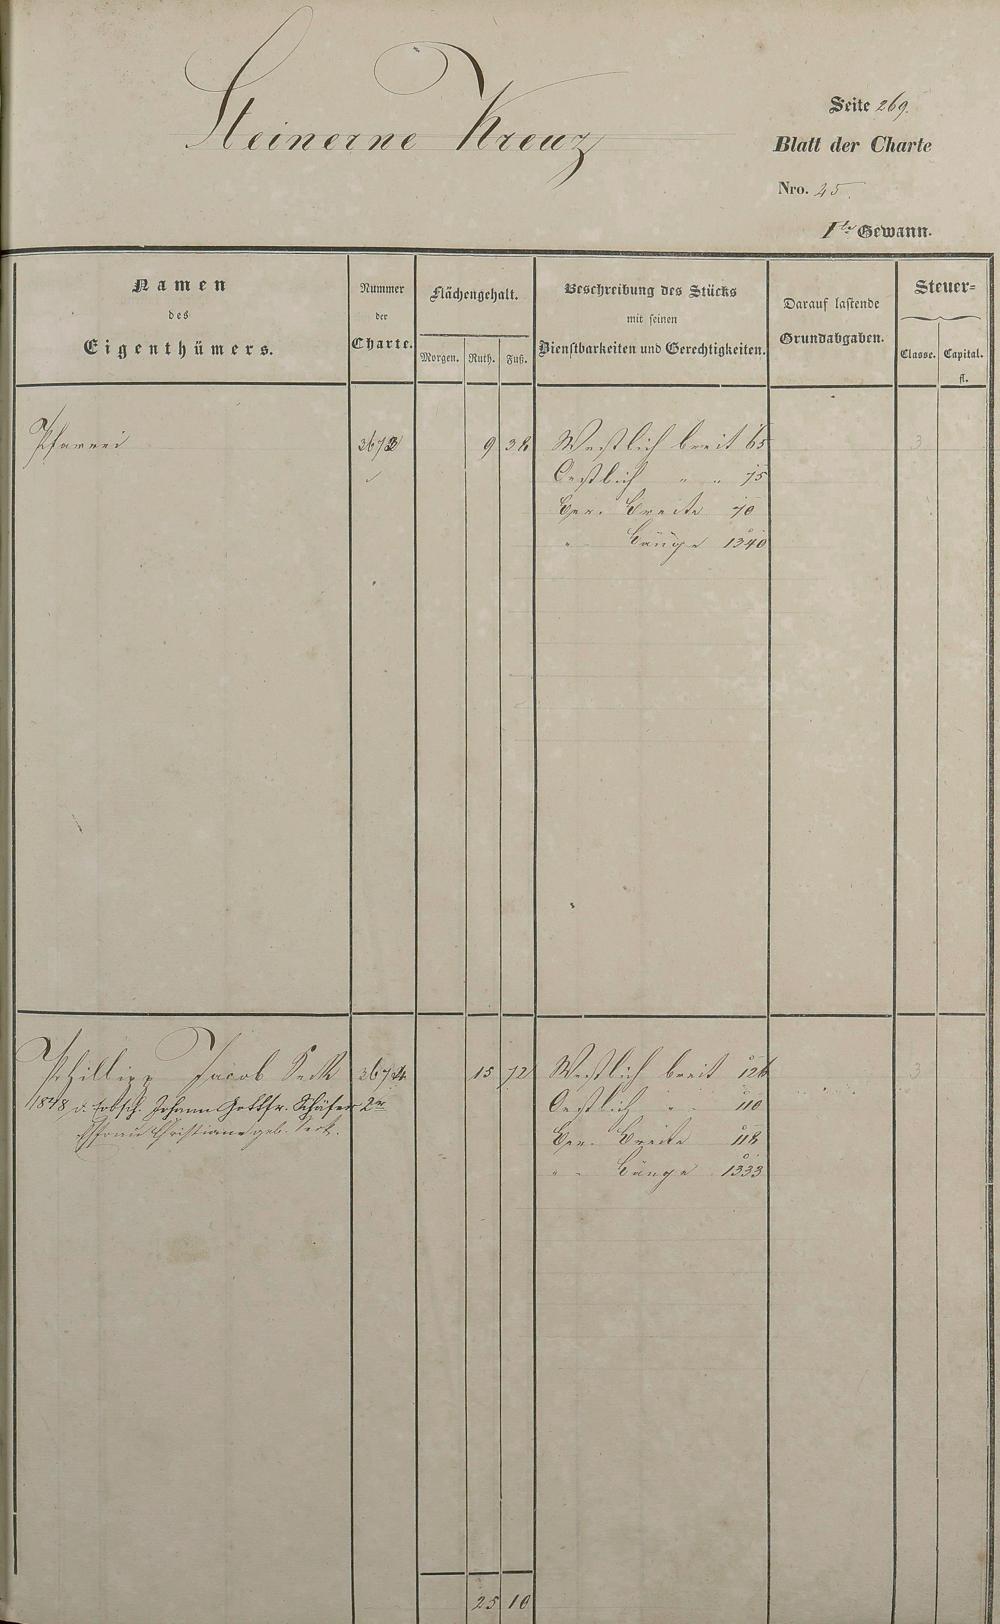 Steinerne Kreuz
Seite 269.
Blatt der Charte
Nro. 25.
Ite Gewann.
Namen
des
Eigenthümers.
Nummer
der
Charte.
Flächengehalt.
Morgen. Ruth. Fuß.
Beschreibung des Stücks
mit seinen
Dienstbarkeiten und Gerechtigkeiten.
Darauf lastende
Grundabgaben.
Steuer=
Classe. Capital.
fl.
Pfarrei 3673 9 38 Westlich breit 65 3
Oestlich " " 75
Ger. Breite 70
" Länge 1340
Phillipp Jacob Seck 3674 15 72 Westlich breit 126 3
1848 d. Erbsch. Johann Gottfr. Schäfer 2r Oestlich " " 110
Ehfrau Christiane geb. Seck. Ger. Breite 118
" " Länge 1333
25 10